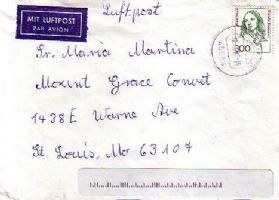 Luftpost
MIT LUFTPOST
PAR AVION
Sr. Maria Martina
Mount Grace Convet
1438 E Warne Ave
St Louis, Mo 63107
300